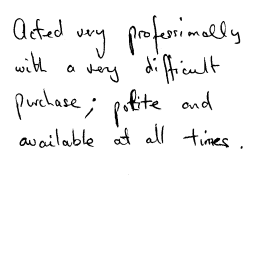 Acted very professionally
with a very difficult
purchase; polite and
available at all times.